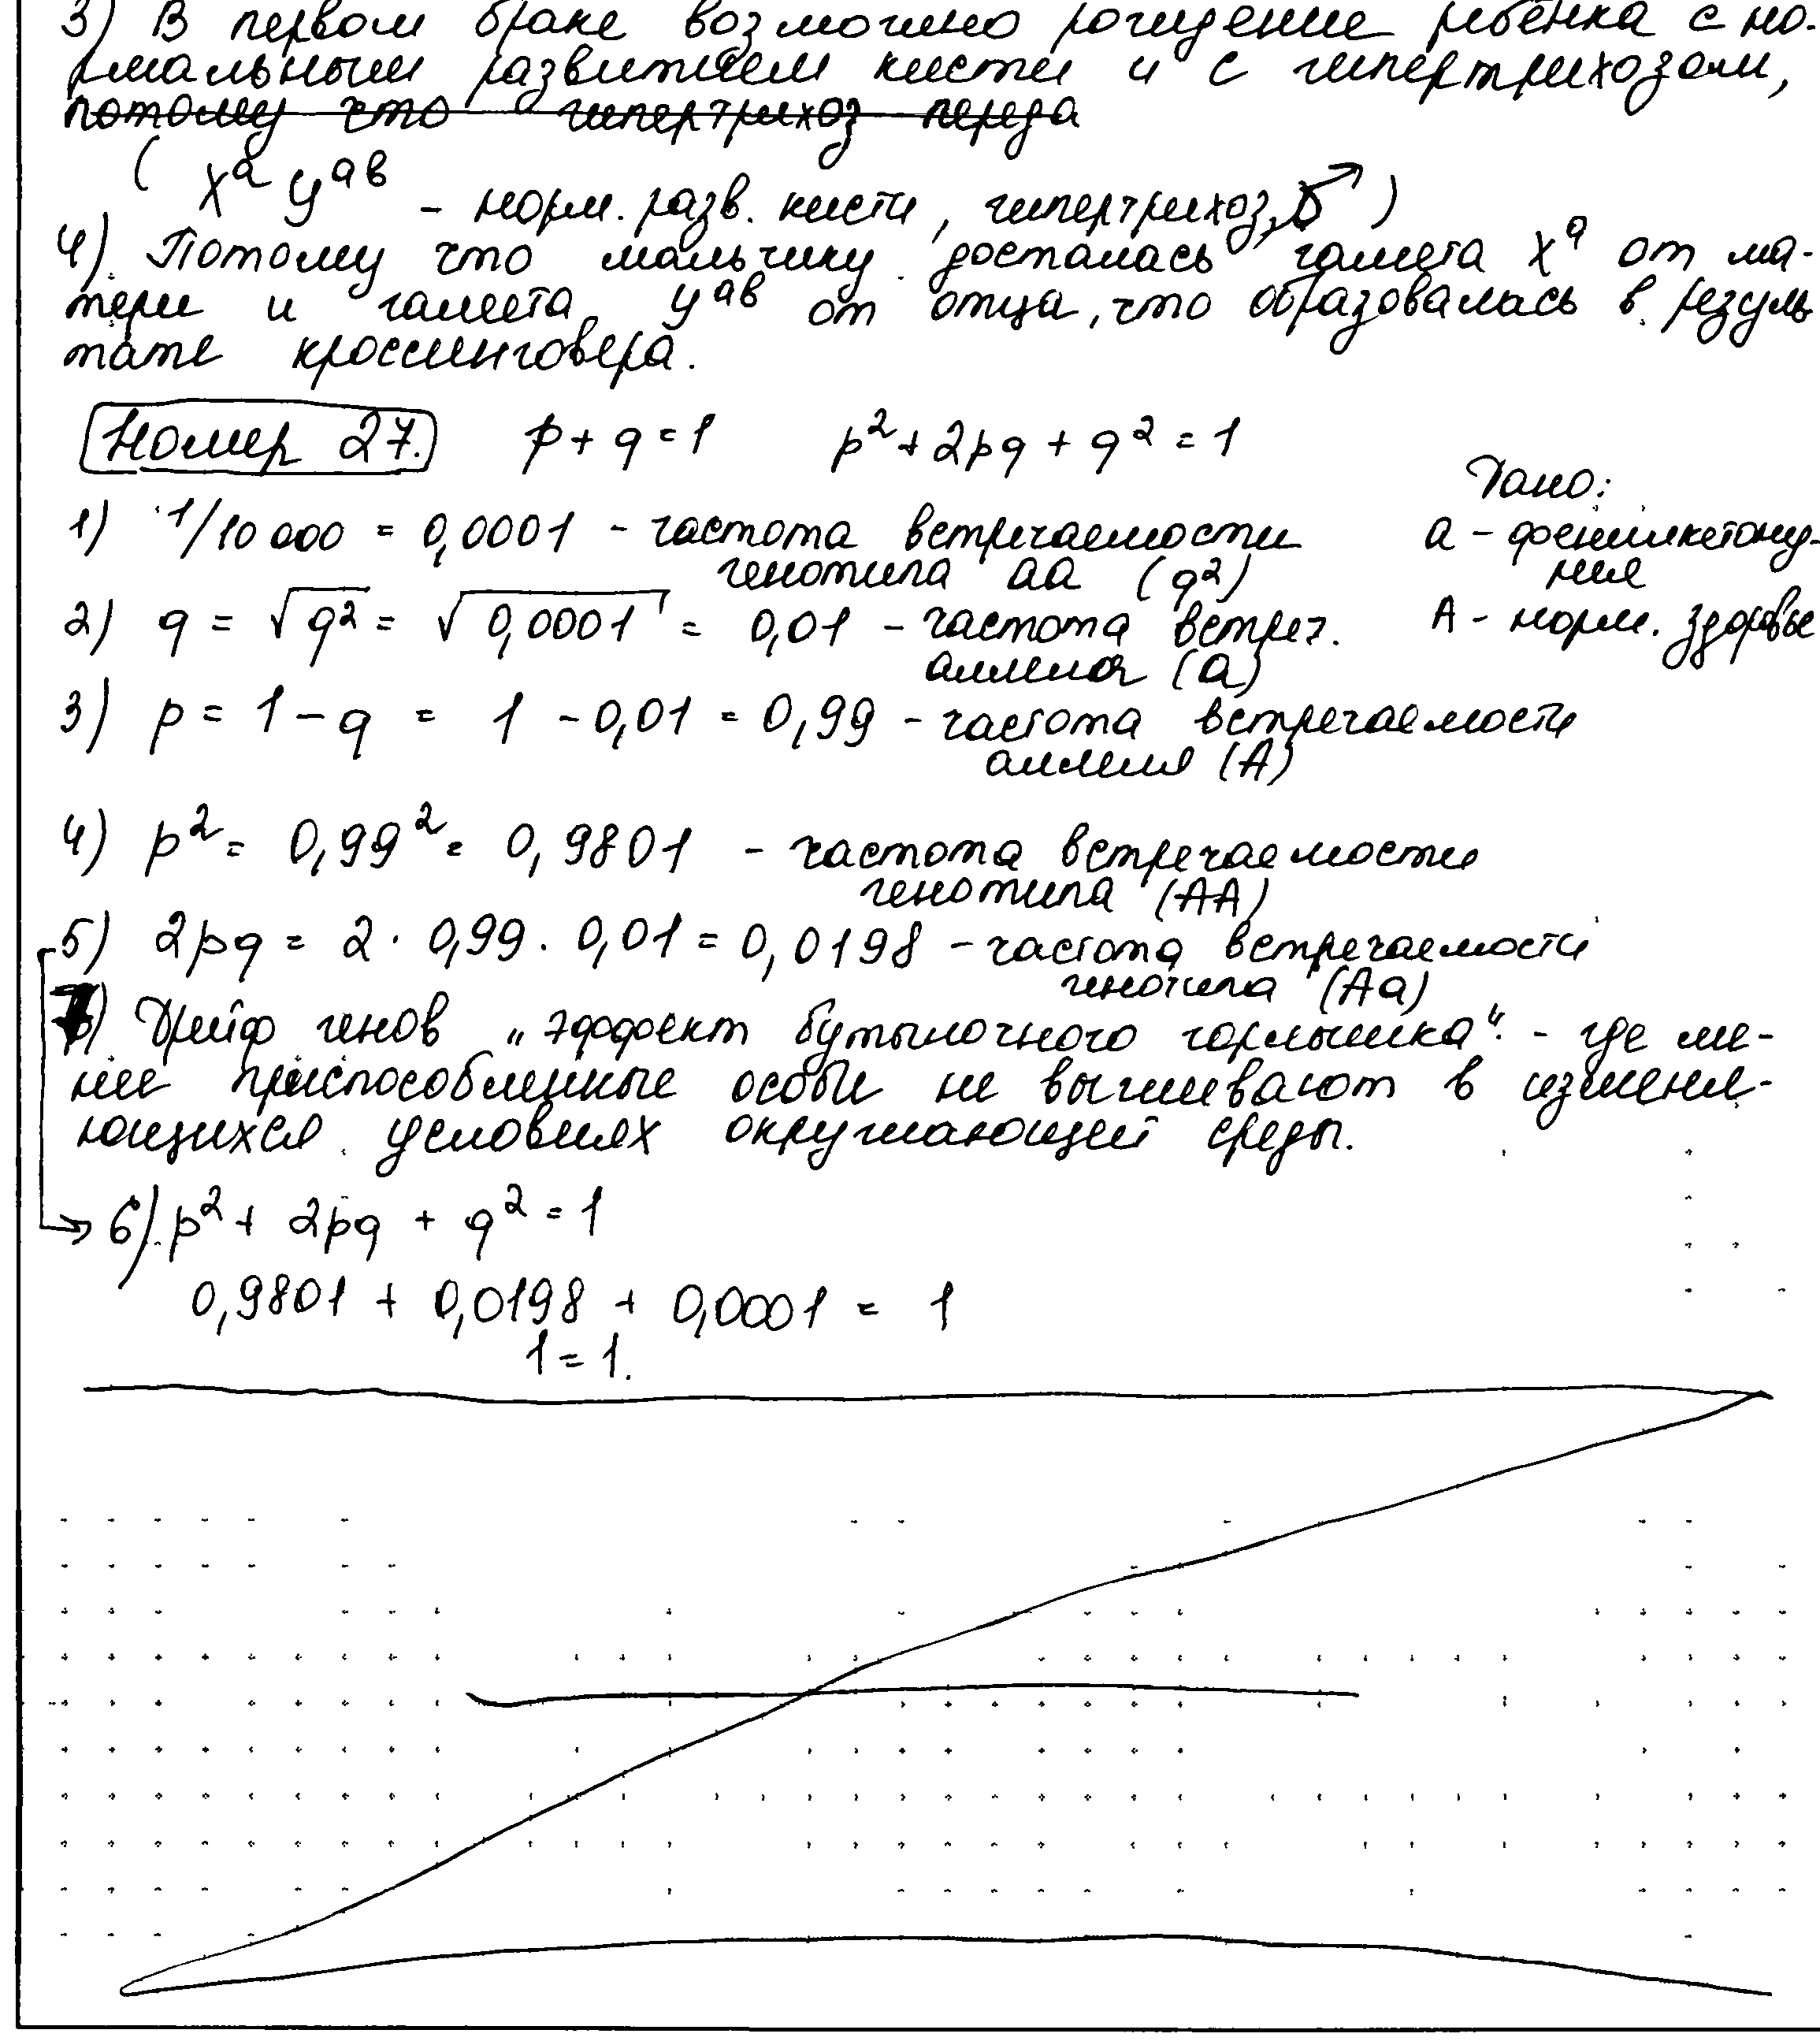 3) В первом браке возможно рождение ребёнка с но-
рмальным развитием кисти и с гипертрихозом,
потому что гипертрихоз переда
( Xᵃ Yᵃᵇ - норм. разв. кисти, гипертрихоз, ♂ )
4). Потому что мальчику досталась гамета Xᵃ от ма-
тери и гамета Yᵃᵇ от отца, что образовалась в резуль
тате кроссинговера.
Номер 27. p + q = 1 p² + 2pq + q² = 1
Дано:
1) 1/10 000 = 0,0001 - частота встречаемости
генотипа aa (q²)
a - фенилкетону-
рия
2) q = √q² = √0,0001 = 0,01 - частота встреч.
аллеля (a)
A - норм. здоровье
3) p = 1 - q = 1 - 0,01 = 0,99 - частота встречаемости
аллеля (A)
4) p² = 0,99² = 0,9801 - частота встречаемости
генотипа (AA)
5) 2pq = 2 · 0,99 · 0,01 = 0,0198 - частота встречаемости
генотипа (Aa)
7) Дрейф генов „эффект бутылочного горлышка“. - где ме-
нее приспособленные особи не выживают в изменя-
ющихся условиях окружающей среды.
6) p² + 2pq + q² = 1
0,9801 + 0,0198 + 0,0001 = 1
1 = 1.